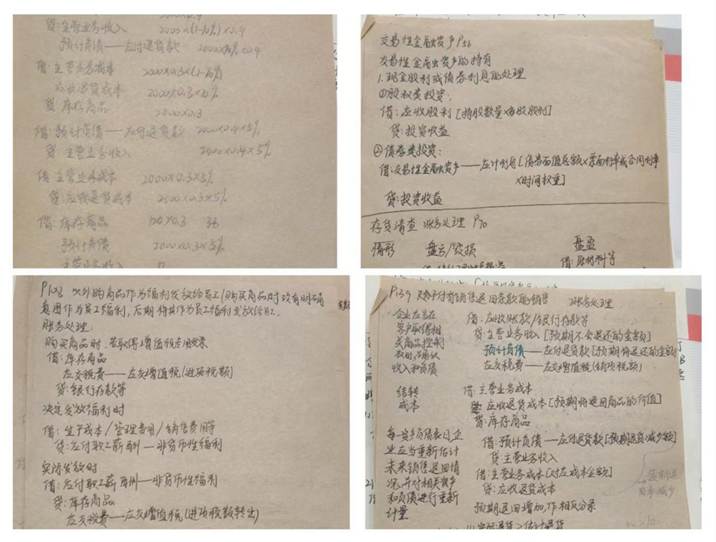 贷:主营业务收入 2000×(1-10%)×0.4
预计负债——应付退货款 2000×10%×0.4
借:主营业务成本 2000×0.3×(1-10%)
应收退货成本 2000×0.3×10%
贷:库存商品 2000×0.3
借:预计负债——应付退货款 2000×0.4×5%
贷:主营业务收入 2000×0.4×5%
借:主营业务成本 2000×0.3×5%
贷:应收退货成本 2000×0.3×5%
借:库存商品
预计负债 2000×0.3×5%
主营业务收入
交易性金融资产
交易性金融资产的持有
1.现金股利或债券利息的处理
①股权类投资:
借:应收股利[持股数量×每股股利]
贷:投资收益
②债券类投资:
借:交易性金融资产——应计利息[债券面值总额×票面利率或合同利率
×时间权重]
贷:投资收益
存货清查 账务处理 P70
情形 盘亏/毁损 盘盈
借:原材料等
P122 以外购商品作为福利发放给员工/购买商品时没有明确
意图作为员工福利,后期将其作为员工福利发放给员工.
账务处理:
购买商品时,若取得增值税专用发票
借:库存商品
应交税费——应交增值税(进项税额)
贷:银行存款等
决定发放福利时
借:生产成本/管理费用/销售费用等
贷:应付职工薪酬—非货币性福利
实际发放时
借:应付职工薪酬—非货币性福利
贷:库存商品
应交税费——应交增值税(进项税额转出)
P139 附有销售退回条款的销售 账务处理
企业应在 借:应收账款/银行存款等
客户取得相 贷:主营业务收入[预期不会退还的金额]
关商品控制 预计负债——应付退货款[预期将退还的金额]
权时,确认 应交税费——应交增值税(销项税额)
收入和负债
结转 借:主营业务成本
成本 应收退货成本[预期将退回商品的价值]
贷:库存商品
每一资产负债表日,企 借:预计负债——应付退货款[预期退货减少额]
业应当重新估计 贷:主营业务收入
未来销售退回情 借:主营业务成本[对应成本金额]
况,并对相关资产 贷:应收退货成本
和负债进行重新 预期退回增加,作相反分录
计量